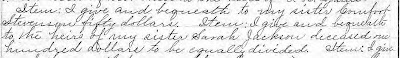 Item: I give and bequeath to my sister Comfort
Stevenson fifty dollars. Item: I give and bequeath
to the heirs of my sister Sarah Jackson deceased one
hundred Dollars to be equally divided. Item: I give